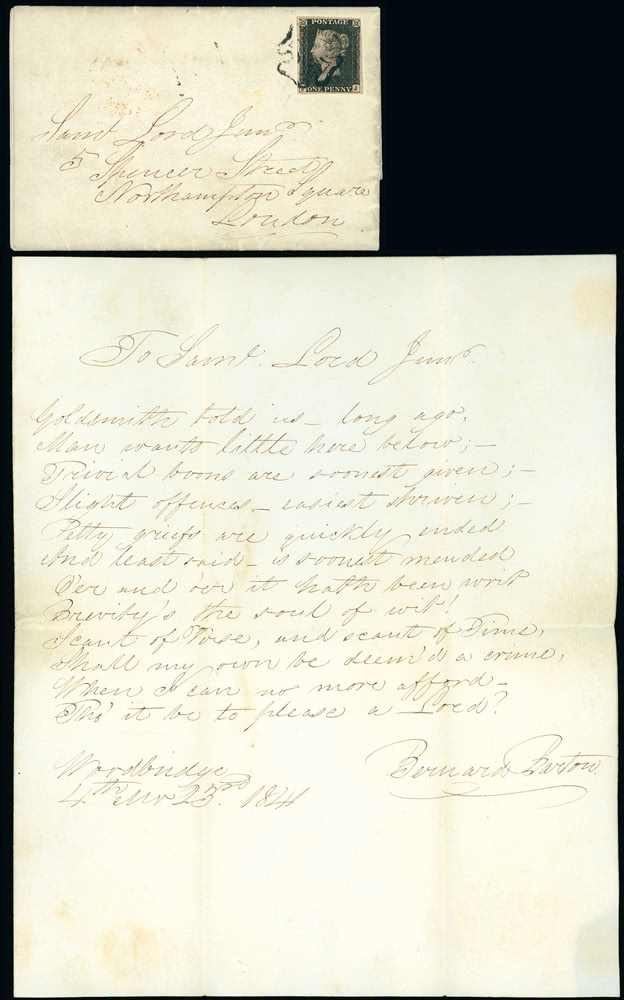 POSTAGE
ONE PENNY
Saml Lord Junr
5 Spencer Street
Northampton Square
London
To Saml. Lord Junr.
Goldsmith told us – long ago,
Man wants little here below; –
Trivial boons are soonest given; –
Slight offences – easiest shriven; –
Petty griefs are quickly ended
And least said – is soonest mended
O'er and o'er it hath been writ
Brevity's the soul of wit!
Scant of Time,
Shall my own be deem'd a crime,
When I can no more afford –
Tho' it be to please a Lord?
Woodbridge
4th Mo 23rd. 1841
Bernard Barton